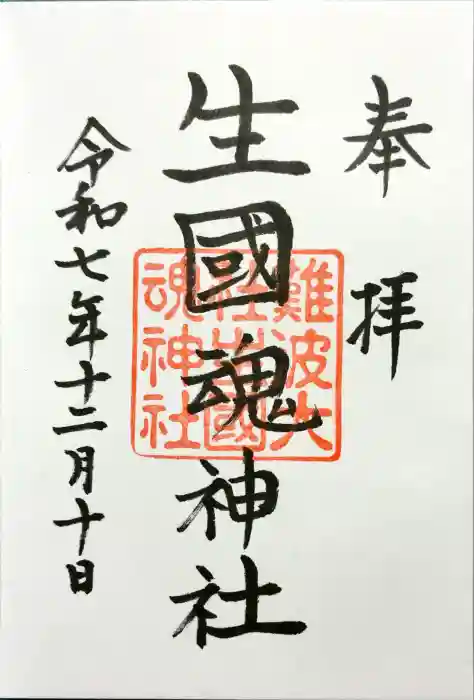 奉拝
生國魂神社
難波大
社生國
魂神社
令和七年十二月十日